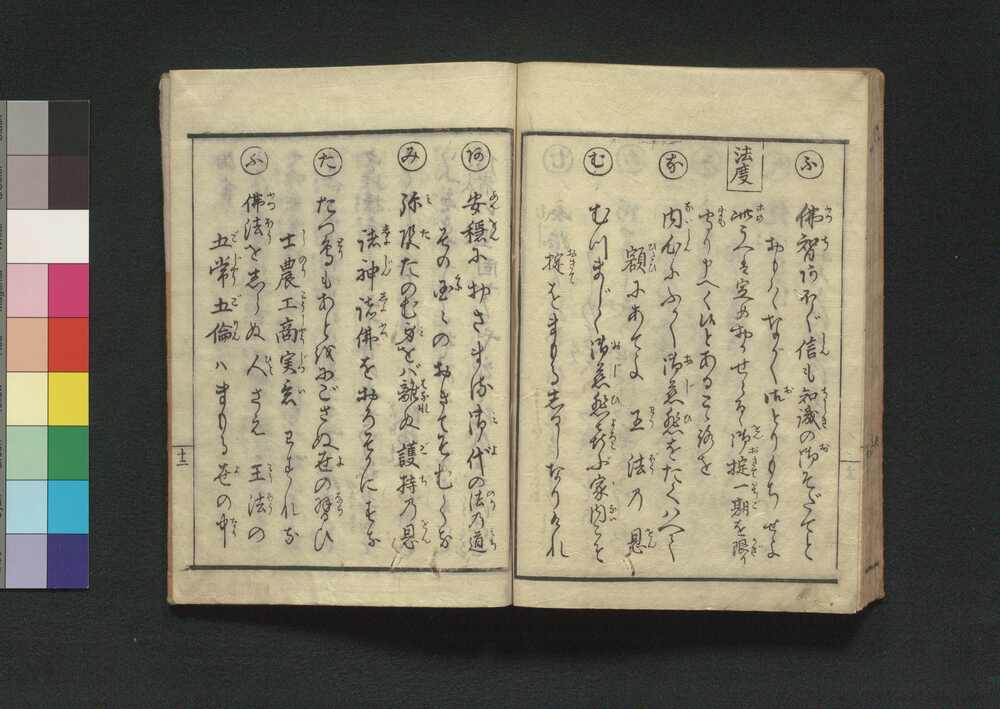 ふ 佛智あふぐ信も知識の御そだてと
おもくなが〳〵御とりもちせよ
法度
此うへは定めおかせらるゝ御掟一期を限り
まもり申べく候とあるこゝろを
な 内心にふかく御慈悲をたくハへて
額にあてよ王法の恩
む むつまじく御慈悲よろこぶ家内こそ
掟をまもるしるしなりけれ
阿 安穏におさまる御代の法の道
その国々のおきてそむくな
み 弥陀たのむ身をバ離れぬ護持の恩
諸神諸佛をおろそかにすな
た たつ鳥もあとをにごさぬ世の習ひ
士農工商実意わすれな
ふ 佛法をしらぬ人さえ王法の
五常五倫ハまもる世の中
十二